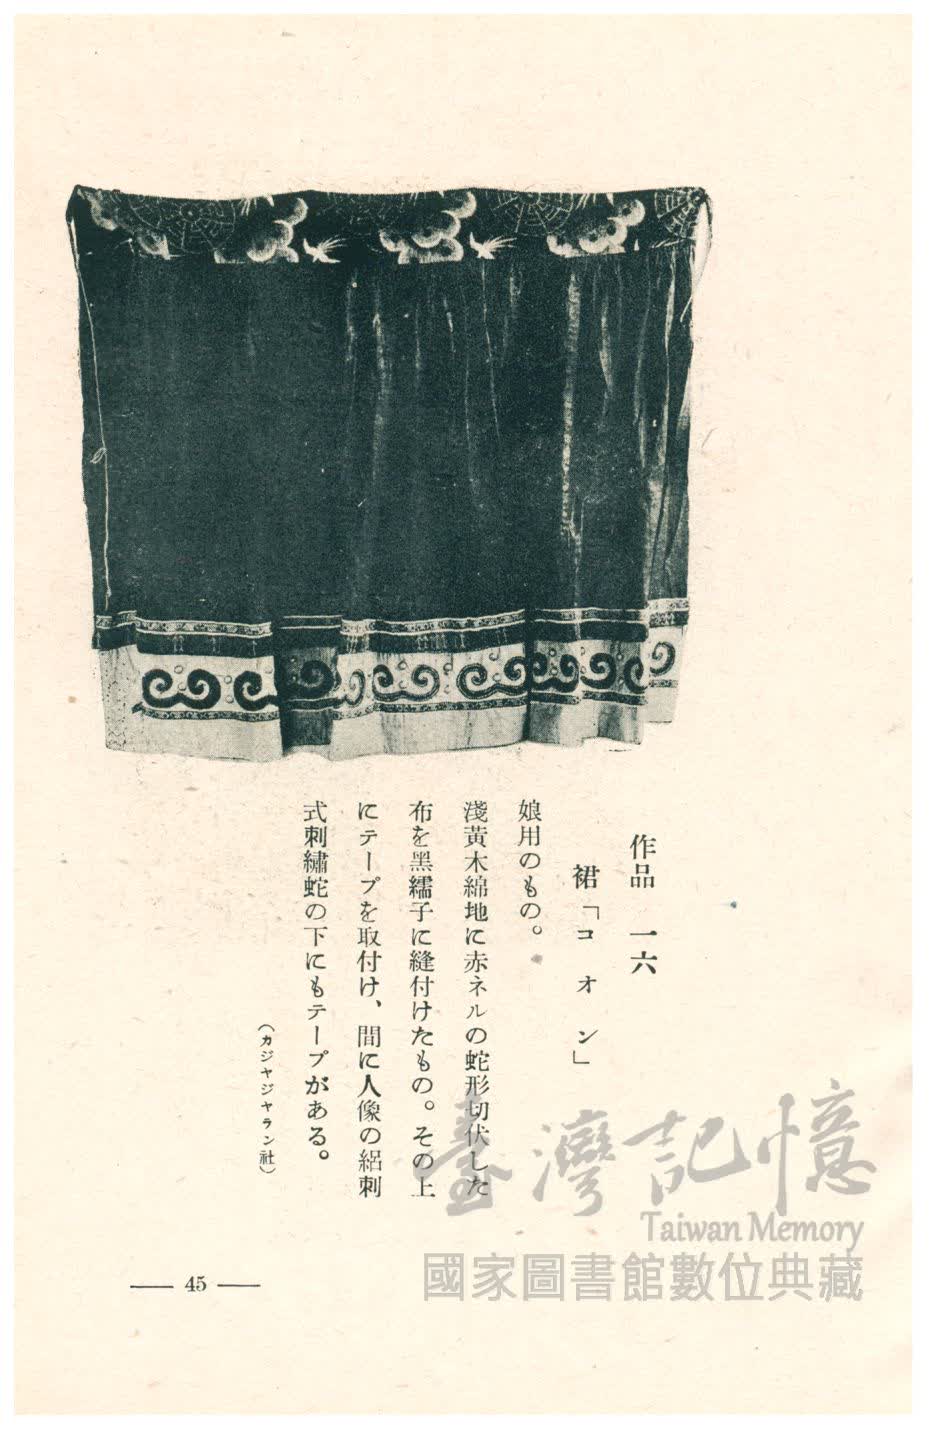 作品 一六
裙「コオン」
娘用のもの。
淺黃木綿地に赤ネルの蛇形切伏した
布を黑繻子に縫付けたもの。その上
にテープを取付け、間に人像の絽刺
式刺繡蛇の下にもテープがある。
(カジャジャラン社)
臺灣記憶
Taiwan Memory
國家圖書館數位典藏
— 45 —